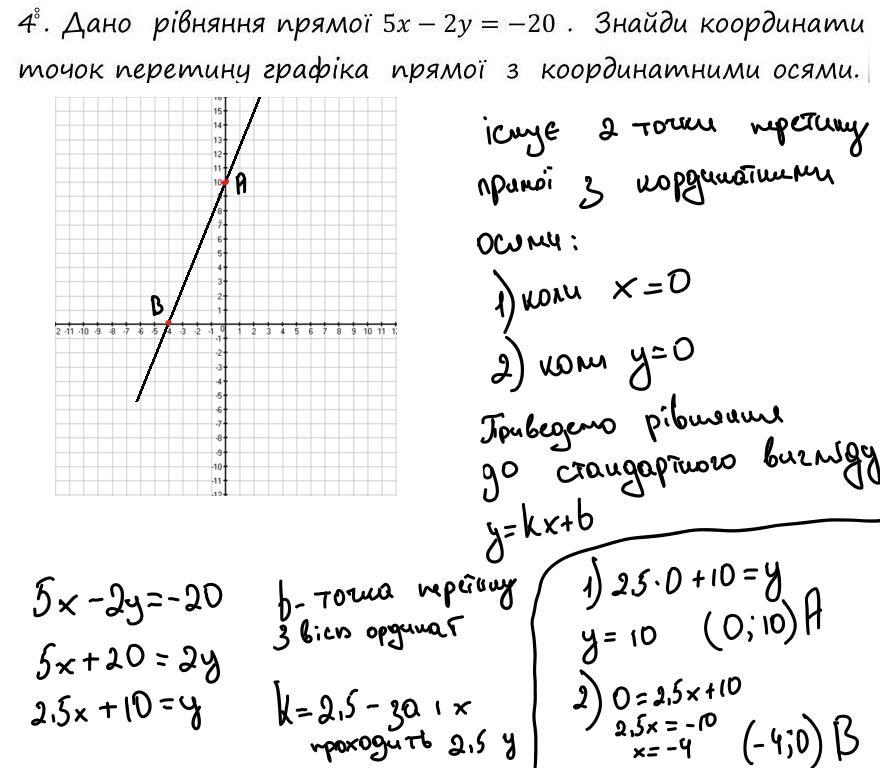 4°. Дано рівняння прямої 5x − 2y = −20 . Знайди координати
точок перетину графіка прямої з координатними осями.
існує 2 точки перетину
прямої з кординатними
осями:
1) коли x=0
2) коли y=0
Приведемо рівняння
до стандартного вигляду
y=kx+b
16
15
14
13
12
11
10
A
8
7
6
5
4
3
2
1
B
2 -11 -10 -9 -8 -7 -6 -5 -4 -3 -2 -1 0 1 2 3 4 5 6 7 8 9 10 11 1
-1
-2
-3
-4
-5
-6
-7
-8
-9
-10
-11
-12
5x −2y=−20
5x+20=2y
2,5x+10=y
b- точка перетину
з вісю ординат
k=2,5 - за 1 x
проходить 2,5 y
1) 2,5·0+10=y
y=10 (0;10) A
2) 0=2,5x+10
2,5x=-10
x=-4 (-4;0) B